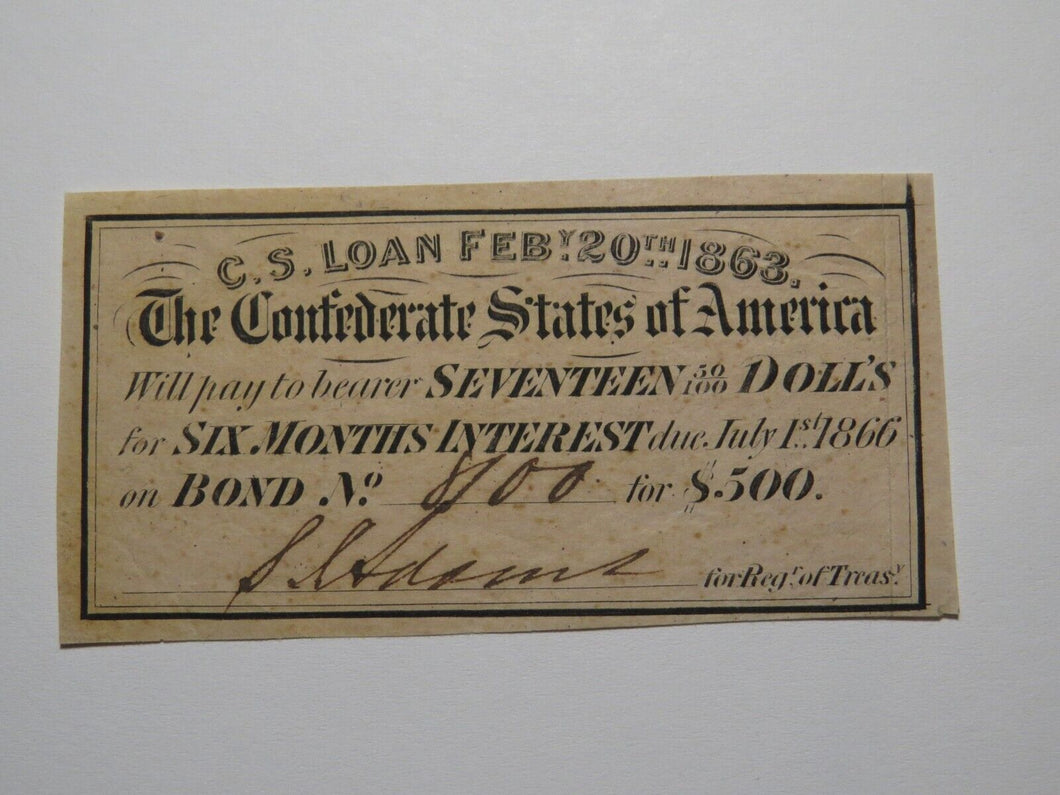 C.S. LOAN FEBY. 20TH. 1863.
The Confederate States of America
Will pay to bearer SEVENTEEN 50/100 DOLL'S
for SIX MONTHS INTEREST due July 1st. 1866
on BOND No. 8100 for $500.
S S Adams for Regr. of Treasy.